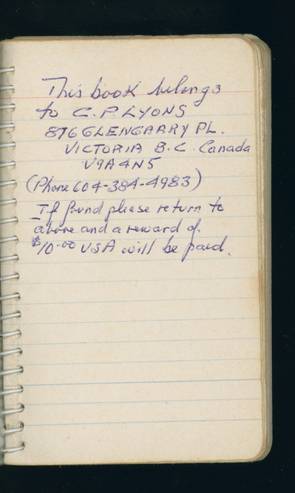 This book belongs
to C.P. LYONS
876 GLENGARRY PL.
VICTORIA B.C. Canada
V9A 4N5
(Phone 604-384-4983)
If found please return to
above and a reward of
$10.00 USA will be paid.